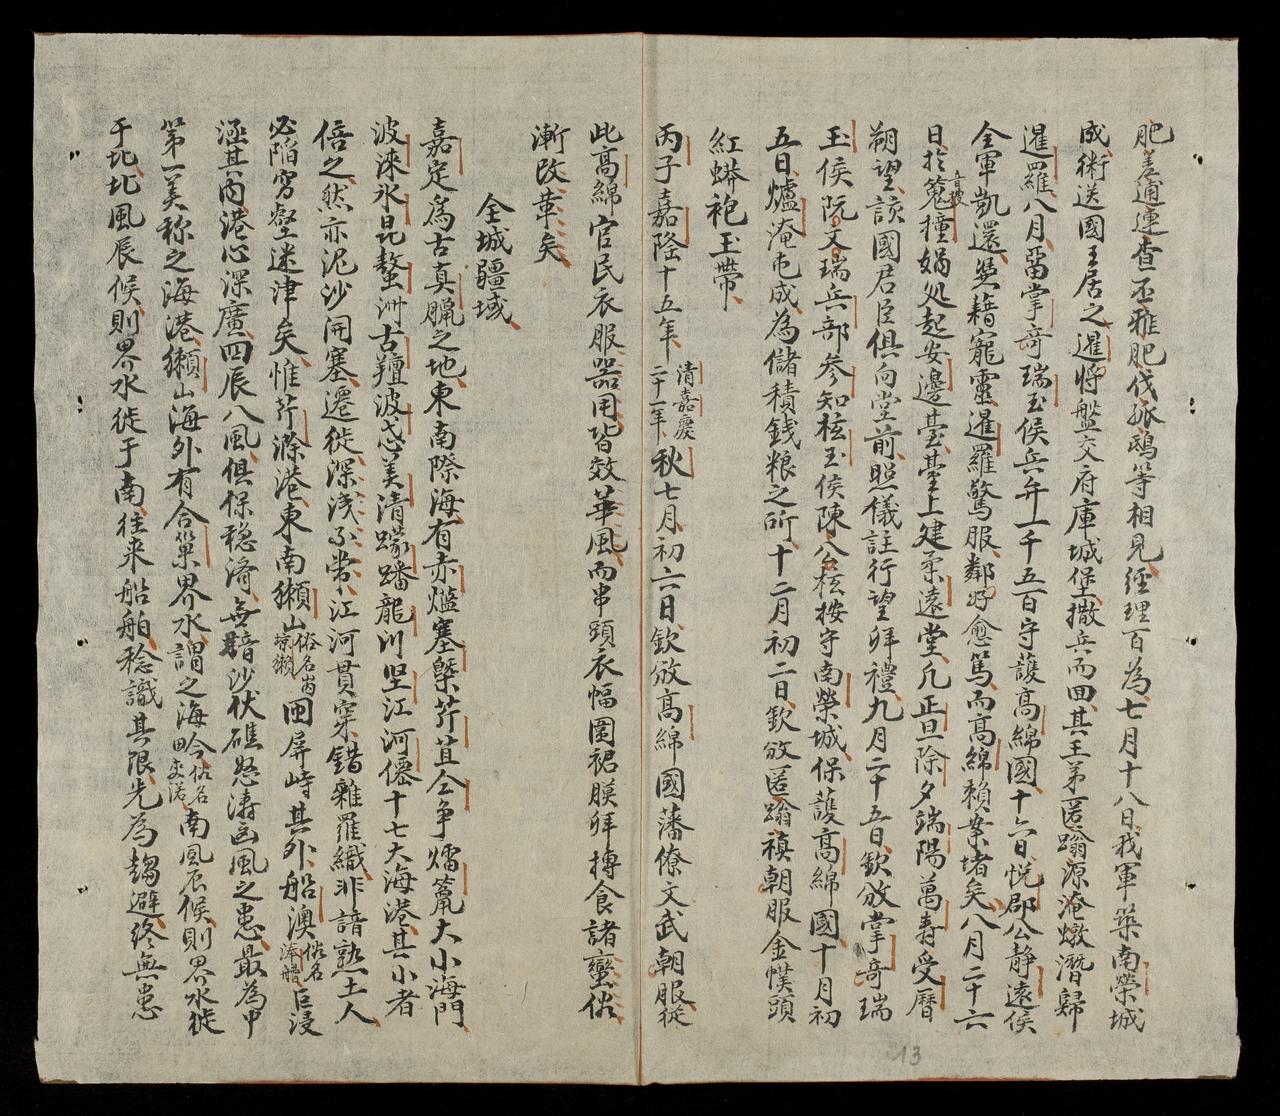 肥差通連查丕雅肥伐孤鴟等相見經理百為七月十八日我軍築南榮城
成術送國王居之暹將盤交府庫城堡撒兵而回其王弟匿螉源淹燉潛歸
暹羅八月畱掌奇瑞玉侯兵弁一千五百守護高綿國十六日悅郡公静遠侯
全軍凱還奠藉寵靈暹羅驚服鄰好愈篤而高綿賴案堵矣八月二十六
日於蒐撞媧処起安邊臺臺上建柔遠堂凡正旦除夕端陽萬壽受曆
朔望該國君臣俱向堂前照儀註行望拜禮九月二十五日欽放掌奇瑞
玉侯阮文瑞兵部参知桉玉侯陳公桉按守南榮城保護高綿國十月初
五日爐淹屯成為儲積錢粮之所十二月初二日欽放匿螉禛朝服金幞頭
紅蟒袍玉帶
丙子嘉隆十五年清嘉慶二十一年秋七月初六日欽放高綿國藩僚文武朝服從
此高綿官民衣服器用皆效華風而串頭衣幅圍裙膜拜摶食諸蠻俗
漸改革矣
全城疆域
嘉定為古真臘之地東南際海有赤爐塞槩芹苴仝爭爌䉶大小海門
波淶氷昆螯洲古䊲波忒美清躌蹯龍川坚江河僊十七大海港其小者
倍之然亦泥沙開塞遷徙深浅不常江河貫穿錯雜羅織非諳熟土人
必陷窮壑迷津矣惟芹滁港東南獺山俗名𡶀㖫獺囬屏峙其外船澳俗名漆艚巨浸
涵其內港心深廣四辰八風俱保穏濟無暗沙伏礁怒濤凾風之患最為甲
第一美称之海港獺山海外有合巢界水謂之海吟俗名㽥沒渃南風辰候則界水徙
于北北風辰候則界水徙于南往来船舶稔識其限先為趨避終無患